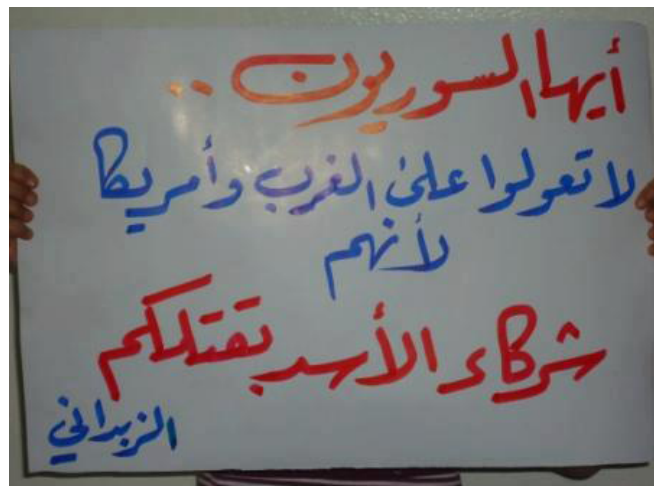 أيها السوريون ..
لا تعولوا على الغرب وأمريكا
لأنهم
شركاء الأسد بقتلكم
الزبداني